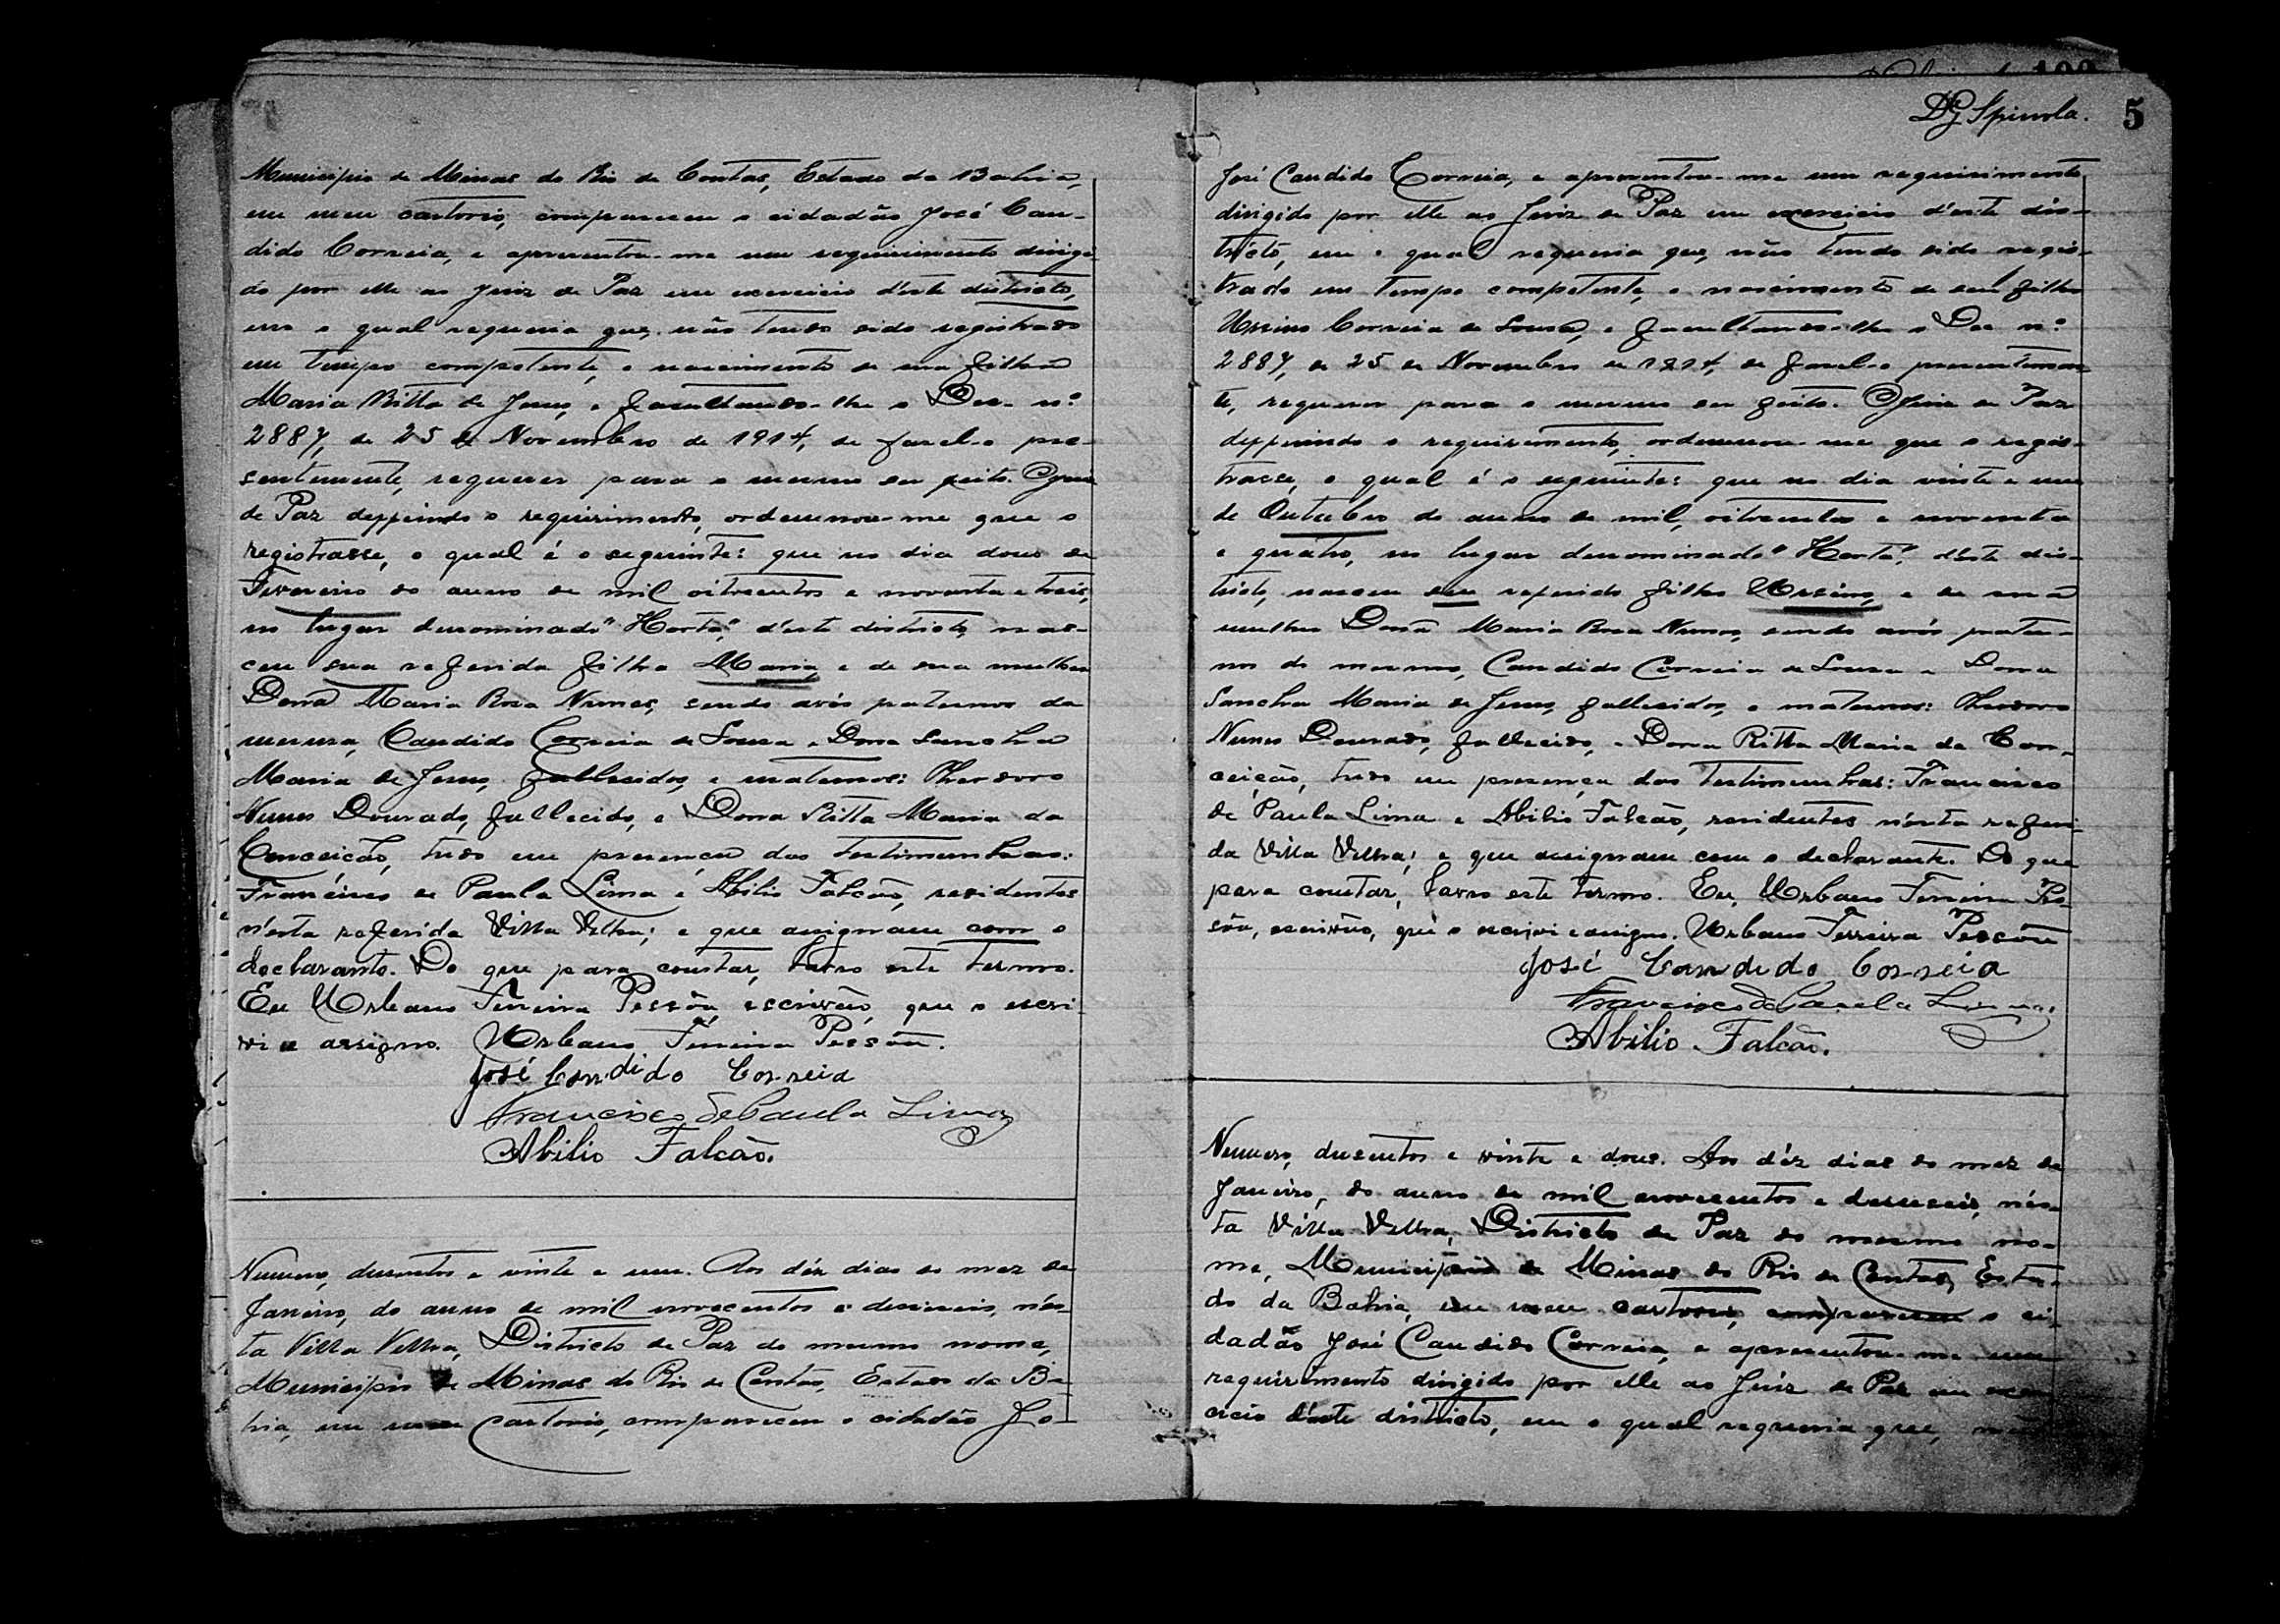 Municipio de Minas do Rio de Contas, Estado da Bahia,
em meu cartorio, compareceu o cidadão José Can-
dido Correia, e apresentou-me um requirimento dirigi-
do por elle ao Juiz de Paz em exercicio d'este districto,
em o qual requeria que, não tendo sido registrado
em tempo competente, o nascimento de sua filha
Maria Ritta de Jesus, e facultando-lhe o Dec. nº
2887, de 25 de Novembro de 1914, de fazel-o pre-
sentemente, requerer para o mesmo ser feito. O Juiz
de Paz defferindo o requirimento, ordennou-me que o
registrasse, o qual é o seguinte: que no dia dous de
Fevereiro do anno de mil oitocentos e noventa e treis,
no lugar denominado "Horta", d'este districto, nas-
ceu sua referida filha Maria, e de sua mulher
Dona Maria Rosa Nunes, sendo avós paternos da
mesma, Candido Correia de Souza e Dona Sancha
Maria de Jesus, fallecidos, e maternos: Theodoro
Nunes Dourado, fallecido, e Dona Ritta Maria da
Conceição, tudo em presença das testimunhas:
Francisco de Paula Lima e Abilio Falcão, residentes
n'esta referida Villa Velha; e que assignam com o
declarante. Do que para constar, lavro este termo.
Eu Urbano Ferreira Pessôa, escrivão, que o escri-
vi e assigno. Urbano Ferreira Pessôa.
José Candido Correia
Francisco de Paula Lima
Abilio Falcão.
Numero, dusentos e vinte e um. Aos déz dias do mez de
Janeiro, do anno de mil novecentos e deseseis, n'és-
ta Villa Velha, Districto de Paz do mesmo nome,
Municipio de Minas do Rio de Contas, Estado da Ba-
hia, em meu cartorio, compareceu o cidadão Jo-
DG Spinola. 5
José Candido Correia, e apresentou-me um requirimento
dirigido por elle ao Juiz de Paz em exercicio d'este dis-
tricto, em o qual requeria que, não tendo sido regis-
trado em tempo competente, o nascimento de seu filho
Ursino Correia de Souza, e facultando-lhe o Dec nº
2887, de 25 de Novembro de 1914, de fazel-o presentemen-
te, requerer para o mesmo ser feito. O Juiz de Paz
defferindo o requirimento, ordennou-me que o regis-
trasse, o qual é o seguinte: que no dia vinte e um
de Outubro do anno de mil, oitocentos e noventa
e quatro, no lugar denominado "Horta", d'este dis-
tricto, nasceu seu referido filho Ursino, e de sua
mulher Dona Maria Rosa Nunes, sendo avós pater-
nos do mesmo, Candido Correia de Souza e Dona
Sancha Maria de Jesus, fallecidos, e maternos: Theodoro
Nunes Dourado, fallecido, e Dona Ritta Maria da Con-
ceição, tudo em presença das testimunhas: Francisco
de Paula Lima e Abilio Falcão, residentes n'esta referi-
da Villa Velha; e que assignam com o declarante. Do que
para constar, lavro este termo. Eu, Urbano Ferreira Pes-
sôa, escrivão, que o escrivi e assigno. Urbano Ferreira Pessôa
José Candido Correia
Francisco de Paula Lima
Abilio Falcão.
Numero, dusentos e vinte e dous. Aos déz dias do mez de
Janeiro, do anno de mil novecentos e deseseis, n'és-
ta Villa Velha, Districto de Paz do mesmo no-
me, Municipio de Minas do Rio de Contas, Esta-
do da Bahia, em meu cartorio, compareceu o ci-
dadão José Candido Correia, e apresentou-me um
requirimento dirigido por elle ao Juiz de Paz em exer-
cicio d'este districto, em o qual requeria que, não